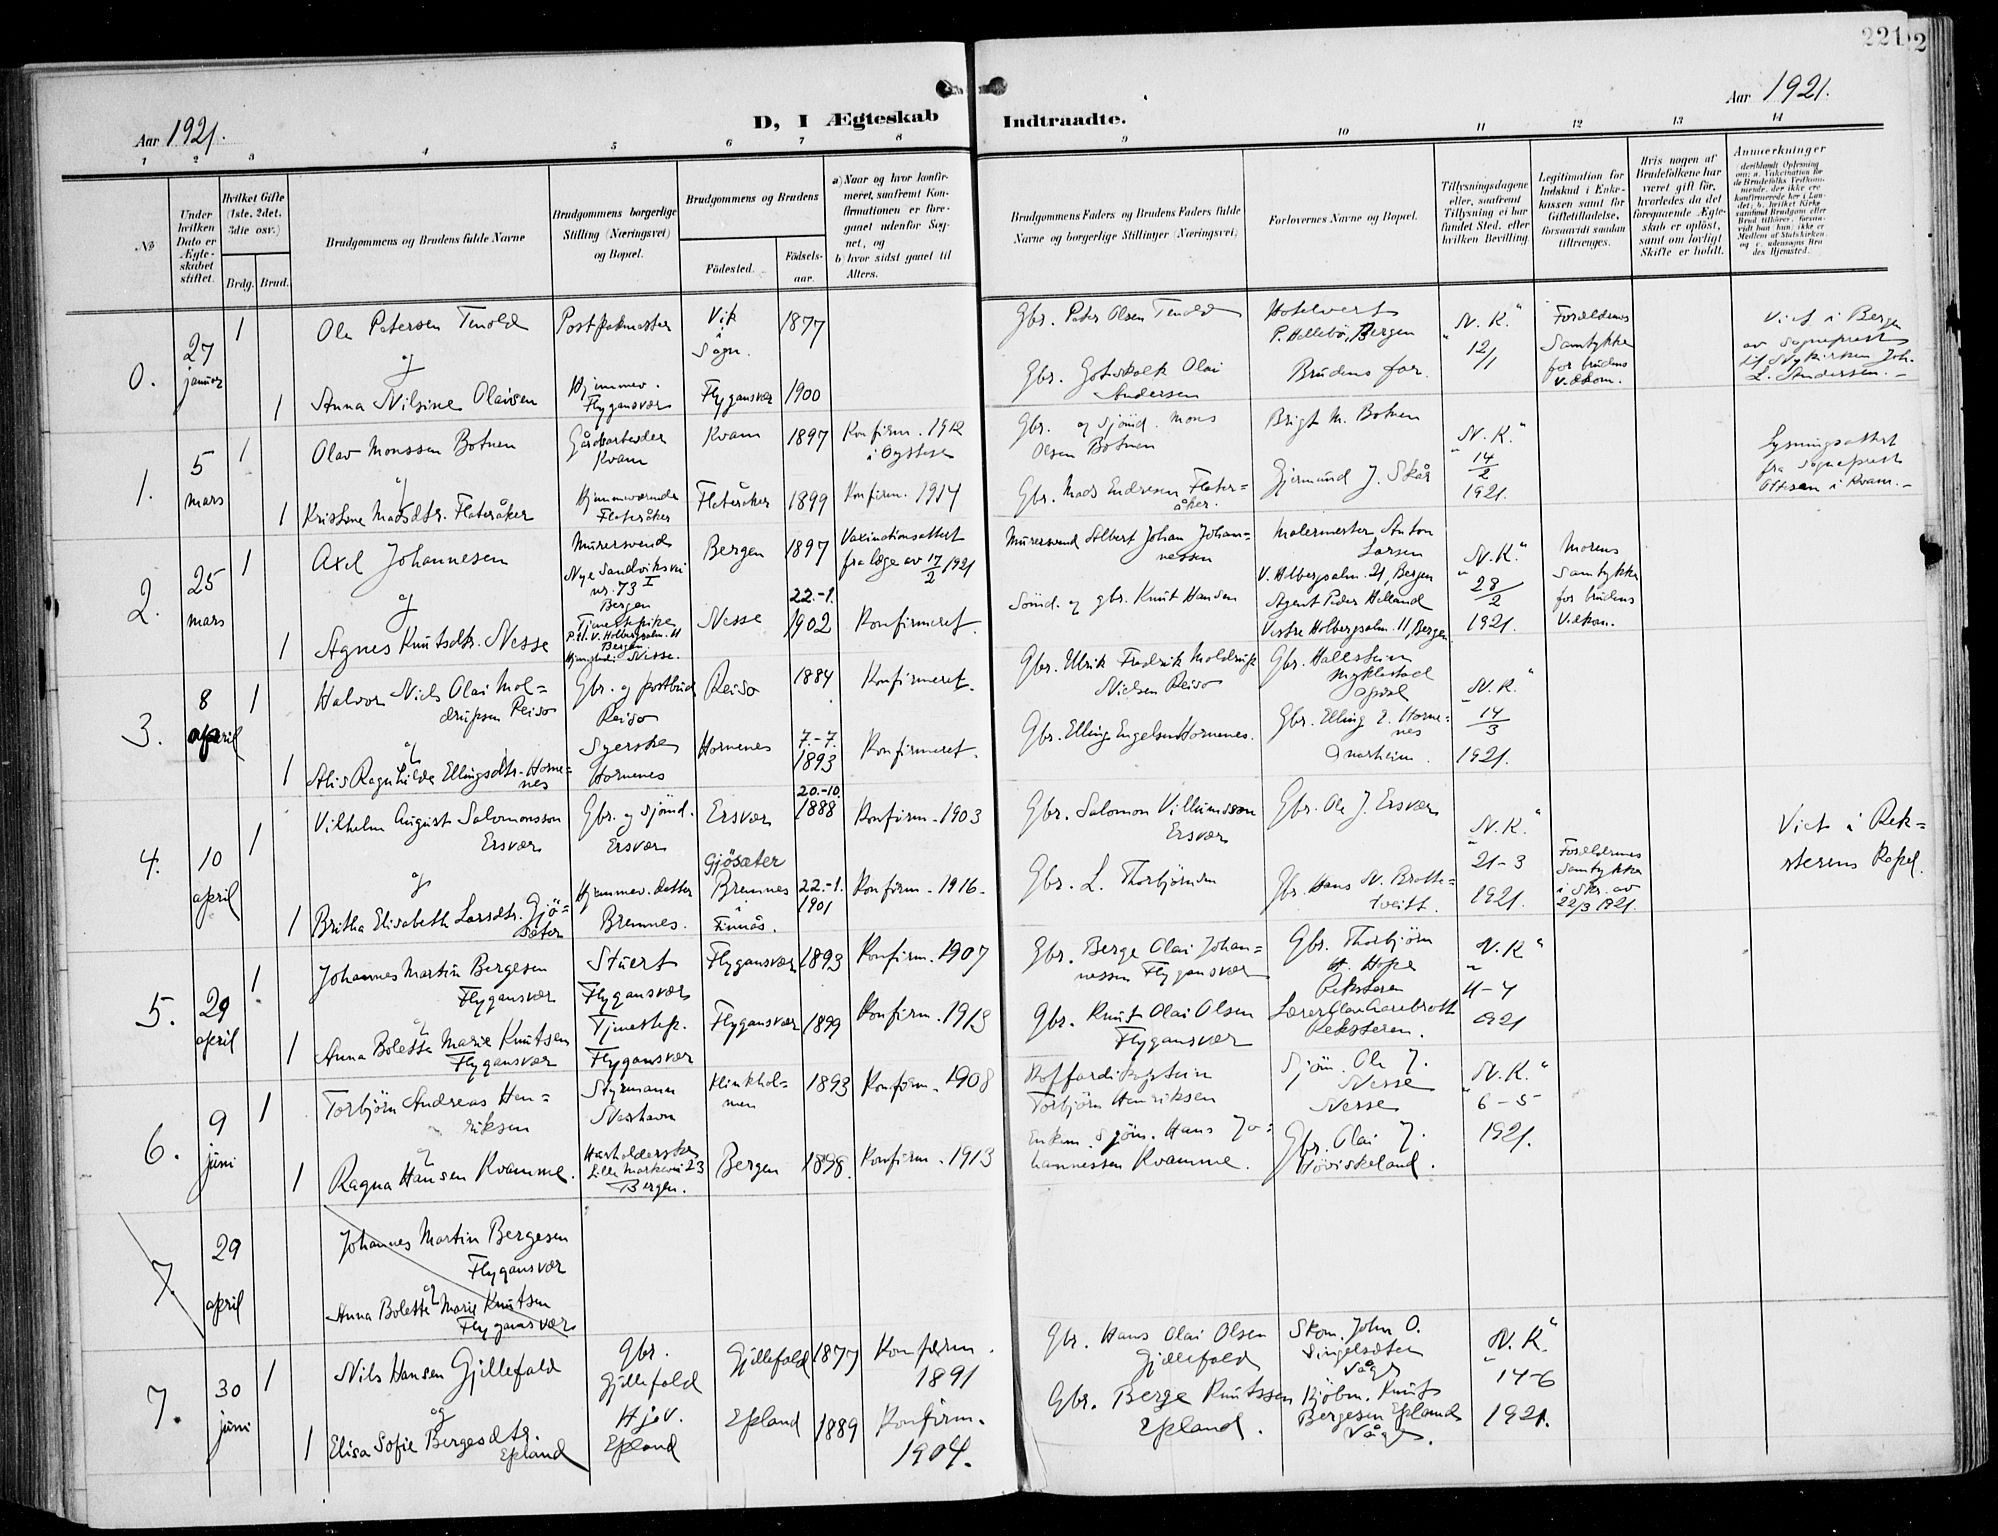 221
2
Aar 1921.
D, I Ægteskab Indtraadte.
Aar 1921.
1 2 3 4 5 6 7 8 9 10 11 12 13 14
No
Under hvilken Dato er Ægteskabet stiftet.
Hvilket Gifte (1ste, 2det, 3die osv.)
Brdg. Brud.
Brudgommens og Brudens fulde Navne
Brudgommens borgerlige Stilling (Næringsvei) og Bopæl.
Brudgommens og Brudens
Födested. Födselsaar.
a) Naar og hvor konfirmeret, saafremt Konfirmationen er foregaaet udenfor Sognet, og
b) hvor sidst gaaet til Alters.
Brudgommens Faders og Brudens Faders fulde Navne og borgerlige Stillinger (Næringsvei)
Forlovernes Navne og Bopæl.
Tillysningsdagene eller, saafremt Tillysning ei har fundet Sted, efter hvilken Bevilling.
Legitimation for Indskud i Enkekassen samt for Giftetilladelse, forsaavidt saadan tiltrænges.
Hvis nogen af Brudefolkene har været gift för, hvorledes da det foregaaende Ægteskab er oplöst, samt om lovligt Skifte er holdt.
Anmerkninger
0.
27 januar
1
Ole Petersen Tenold
og
1
Anna Nilsine Olaisen
Postpakmester
Hjemmev. Flygansvær
Vik i Sogn.
Flygansvær
1877
1900
Gbr. Peter Olsen Tenold
Gbr. Gotskalk Olai Andersen
Hotelvert
P. Hellebö, Bergen
Brudens far.
"N.K."
12/1
Forældrenes
Samtykke
for brudens
Viet i Bergen
av Sogneprest
til Nykirken Joh.
L. Andersen.-
1.
5 mars
1
Olav Monssen Botnen
og
1
Kristine Madsdtr. Flateråker
Gårdsarbeider
Kvam
Hjemmeværende
Flateråker
Kvam
Flateråker
1897
1899
Konfirm. 1912
i Öystese
Konfirm. 1914
Gbr. og Sjömd. Mons
Olsen Botnen
Gbr. Mads Endresen Flater=
åker.
Brigt M. Botnen
Gjermund J. Skår
"N.K."
14/2
1921.
Lysningsattest
fra Sogneprest
Ottesen i Kvam.-
2.
25 mars
1
Axel Johannesen
og
1
Agnes Knutsdtr. Nesse
Murersvend
Nye Sandviksvei
nr. 73 I
Bergen
Tjenestepike
P.t. V. Holbergsalm. 11
Bergen
Hjemsted: Nesse.
Bergen
Nesse
1897
22.-1.
1902
Vaxinationsattest
fra læge av 17/2 1921
Konfirmeret.
Murersvend Albert Johan Johan=
nessen
Sömd. og gbr. Knut Hansen
Malermester Anton
Larsen
V. Holbergsalm. 21, Bergen
Agent Peder Helland
Vestre Holbergsalm. 11, Bergen
"N.K."
28/2
1921.
Morens
Samtykke
for brudens
3.
8 april
1
Halvor Nils Olai Mol=
drupsen Reisö
og
1
Alis Ragnhilda Ellingsdtr. Horne=
nes
Gbr. og postbud
Reisö
Syerske
Hornenes
Reisö
Hornenes
1884
7.-7.
1893
Konfirmeret.
Konfirmeret.
Gbr. Ulrik Fredrik Moldrup
Nielsen Reisö
Gbr. Elling Engelsen Hornenes.
Gbr. Hallstein
Myklestad
Gbr. Elling E. Horne=
nes
"N.K."
14/3
1921.
4.
10 april
1
Vilhelm August Salomonsson
Ersvær
og
1
Britha Elisabeth Larsdtr. Gjö=
sæter
Gbr. og Sjömd.
Ersvær
Hjemmev. datter
Bremnes.
Ersvær
Gjösæter
Bremnes
i
Finnås.
20.-10.
1888
22.-1.
1901
Konfirm. 1903
Konfirm. 1916.
Gbr. Salomon Villumsson
Ersvær
Gbr. L. Thorbjörnsen
Gbr. Ole J. Ersvær
Gbr. Hans N. Bratte=
tveitt.
"N.K."
21-3
1921.
Forældrenes
Samtykke
i Skr. av
22/3 1921.
Viet i Rek=
sterens Kapel.
5.
29 april
1
Johannes Martin Bergesen
Flygansvær
og
1
Anna Bolette Marie Knutsen
Flygansvær
Stuert
Flygansvær
Tjenestep.
Flygansvær
Flygansvær
Flygansvær
1893
1899
Konfirm. 1907
Konfirm. 1913
Gbr. Berge Olai Johan=
nessen Flygansvær
Gbr. Knut Olai Olsen
Flygansvær
Gbr. Thorbjörn
H. Hope
Reksteren
Reksteren.
"N.K."
11-4
1921
6.
9 juni
1
Torbjörn Andreas Hen=
riksen
og
1
Ragna Hansen Kvamme.
Styrmann
Næshavn
Husholderske
Lille Markevei 23
Bergen.
Klinkhol=
men
Bergen
1893
1898.
Konfirm. 1908
Konfirm. 1913
Koffardikaptein
Torbjörn Henriksen
Enkem. Sjöm. Hans Jo=
hannessen Kvamme.
Sjöm. Ole J.
Nesse
Nesse
Gbr. Olai J.
Höviskeland.
"N.K."
6-5
1921.
7.
29 april
Johannes Martin Bergesen
Flygansvær
og
Anna Bolette Marie Knutsen
Flygansvær
7.
30 juni
1
Nils Hansen Gjillefald
og
1
Elisa Sofie Bergesdtr.
Epland
Gbr.
Gjillefald
Hjev.
Epland
Gjillefald
Epland
1877
1889
Konfirm.
1891
Konfirm.
1904.
Gbr. Hans Olai Olsen
Gjillefald
Gbr. Berge Knutssen
Epland.
Skom. John O.
Singelsæter
Våge
Kjöbm. Knut
Bergesen Epland
Våge.
"N.K."
14-6
1921.